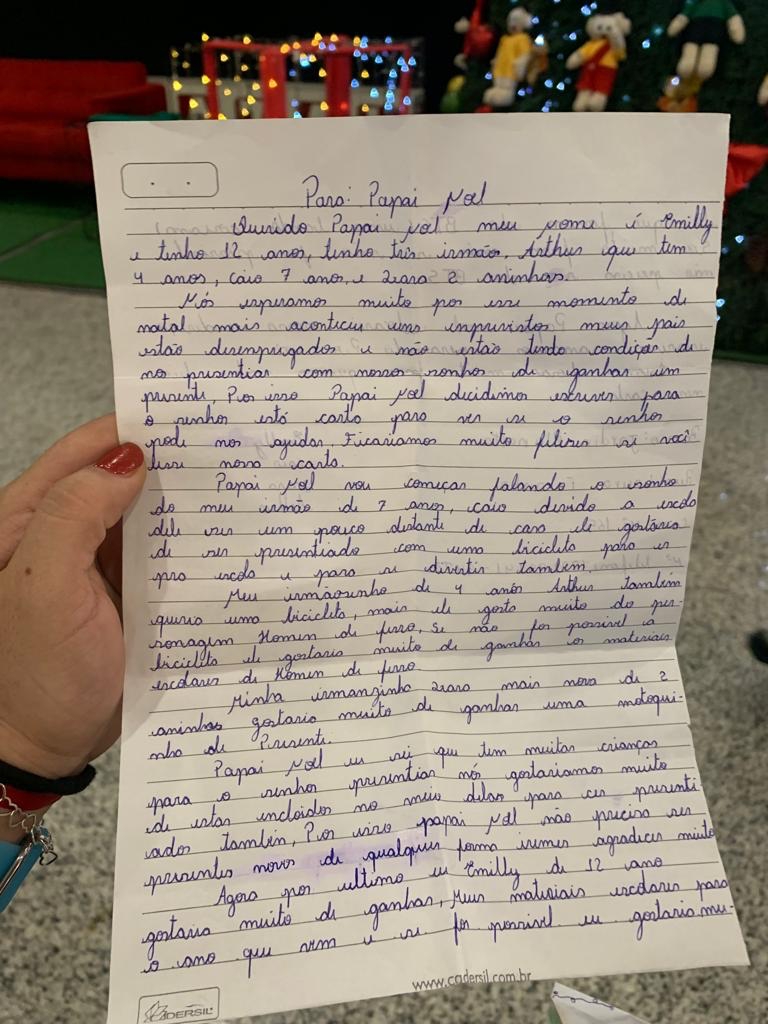 Para: Papai Noel
Querido Pappai Noel meu nome é Emilly
e tenho 12 anos, tenho três irmão, Arthur que tem
4 anos, caio 7 anos, e zaara 2 aninhos.
Nós esperamos muito por esse momento de
natal mais aconteceu uns inprevistos meus pais
estão desenpregados e não estão tendo condição de
nos presentiar com nossos sonhos de ganhar um
presente, Por isso Papai Noel decidimos escrever para
o senhor está carta para ver se o senhor
pode nos ajudar. Ficariamos muito filizes se você
lesse nossa carta.
Papai Noel vou começar falando o sonho
do meu irmão de 7 anos, caio devido a escola
dele ser um pouco distante de casa ele gostaria
de ser presentiado com uma bicicleta para ir
pro escola e para se divertir também.
Meu irmãosinho de 4 anos Arthur também
queria uma bicicleta, mais ele gosta muito do per-
sonagem Homem de ferro, se não for possivel a
bicicleta ele gostaria muito de ganhar os materiais
escolares do Homem de ferro.
Minha irmanzinha mais nova de 2
aninhos gostaria muito de ganhar uma motoqui-
nha de Presente.
Papai Noel eu sei que tem muitas crianças
para o senhor presentiar nós gostariamos muito
de estar encloidos no meio delas para cer presenti-
ados também, Por isso papai Noel não precisa ser
presentes novos de qualquer forma iremos agradecer muito
Agora por ultimo eu Emilly de 12 ano
gostaria muito de ganhar, Meus materiais escolares para
o ano que vem e se for possivel eu gostaria mui-
www.cadersil.com.br
CADERSIL